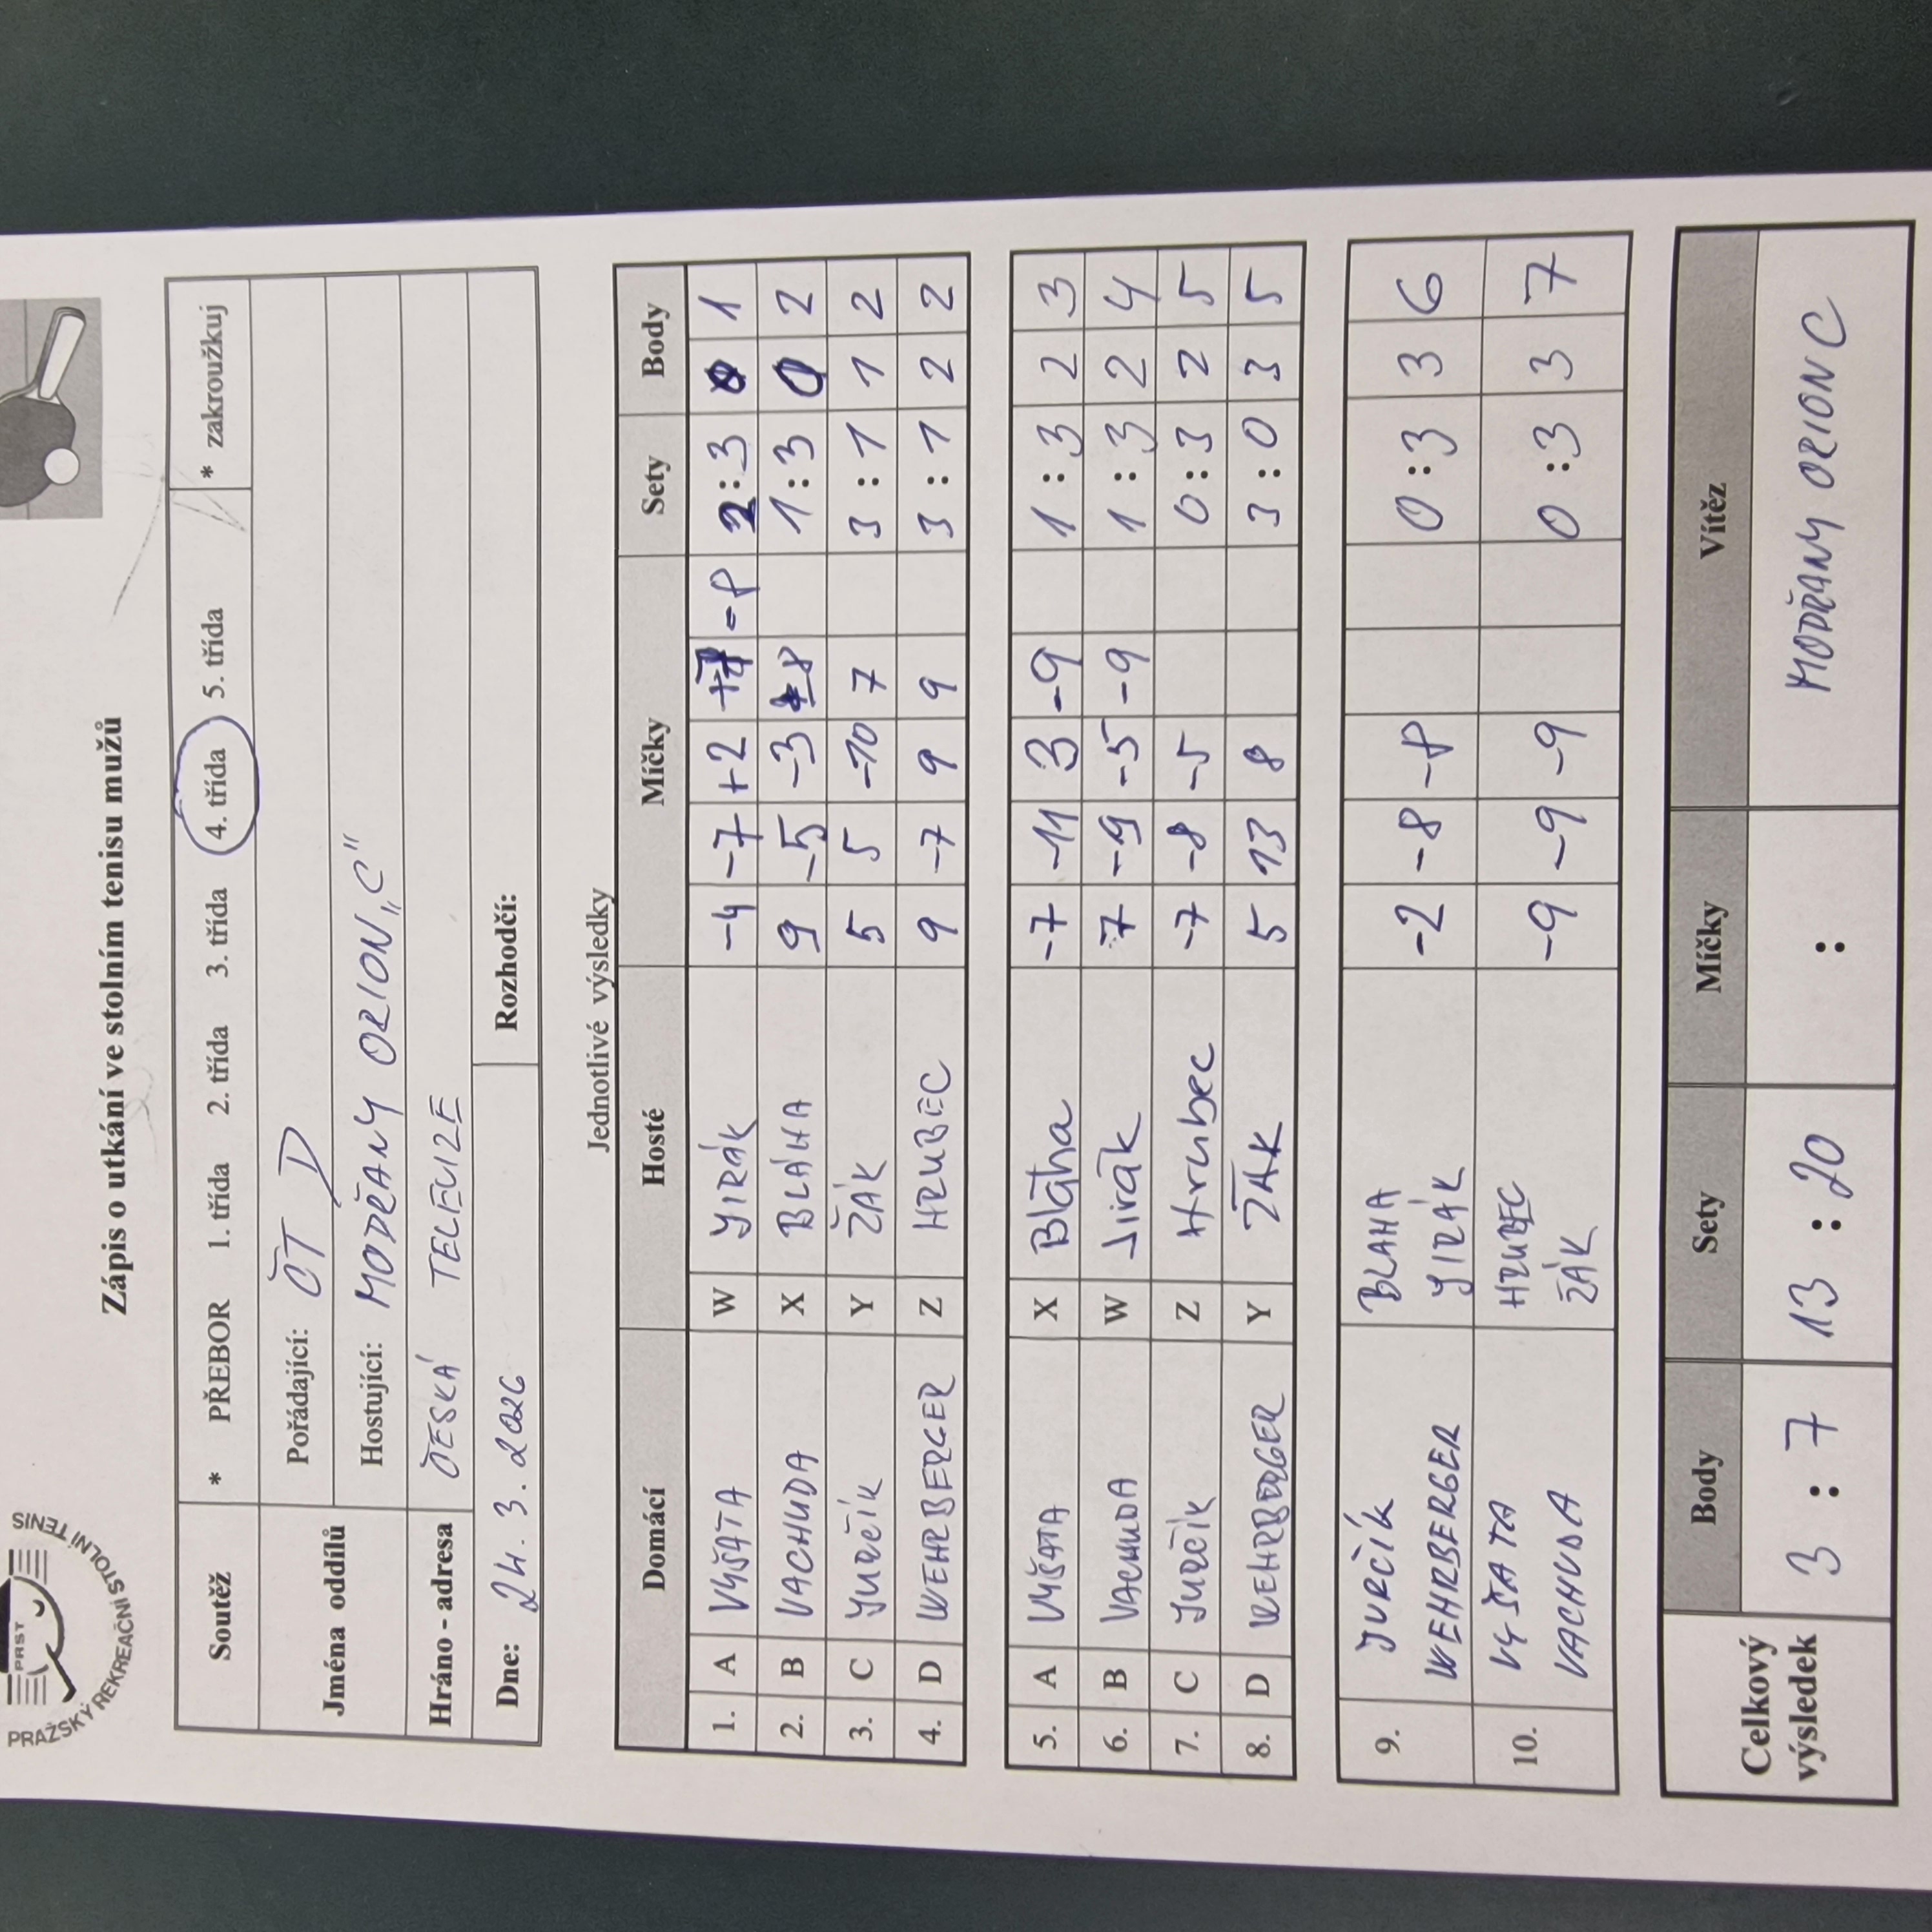 PRST
PRAŽSKÝ REKREAČNÍ STOLNÍ TENIS
Zápis o utkání ve stolním tenisu mužů
Soutěž * PŘEBOR 1. třída 2. třída 3. třída 4. třída 5. třída * zakroužkuj
Jména oddílů Pořádající: ČT D
Hostující: MODŘANY ORION „C"
Hráno - adresa ČESKÁ TELEVIZE
Dne: 24. 3. 2026 Rozhodčí:
Jednotlivé výsledky
Domácí Hosté Míčky Sety Body
1. A VYŠATA W JIRÁK -4 -7 +2 -8 2:3 0 1
2. B VACHUDA X BLÁHA 9 -5 -3 -8 1:3 0 2
3. C JURČÍK Y ŽÁK 5 5 -10 7 3:1 1 2
4. D WEHRBERGER Z HRUBEC 9 -7 9 9 3:1 2 2
5. A VYŠATA X Bláha -7 -11 3 -9 1:3 2 3
6. B VACHUDA W Jirák 7 -9 -5 -9 1:3 2 4
7. C JURČÍK Z Hrubec -7 -8 -5 0:3 2 5
8. D WEHRBERGER Y ŽÁK 5 13 8 3:0 3 5
9. JURČÍK BLAHA -2 -8 -8 0:3 3 6
WEHRBERGER JIRÁK
10. VYŠATA HRUBEC -9 -9 -9 0:3 3 7
VACHUDA ŽÁK
Celkový výsledek Body Sety Míčky Vítěz
3:7 13:20 : MODŘANY ORION C